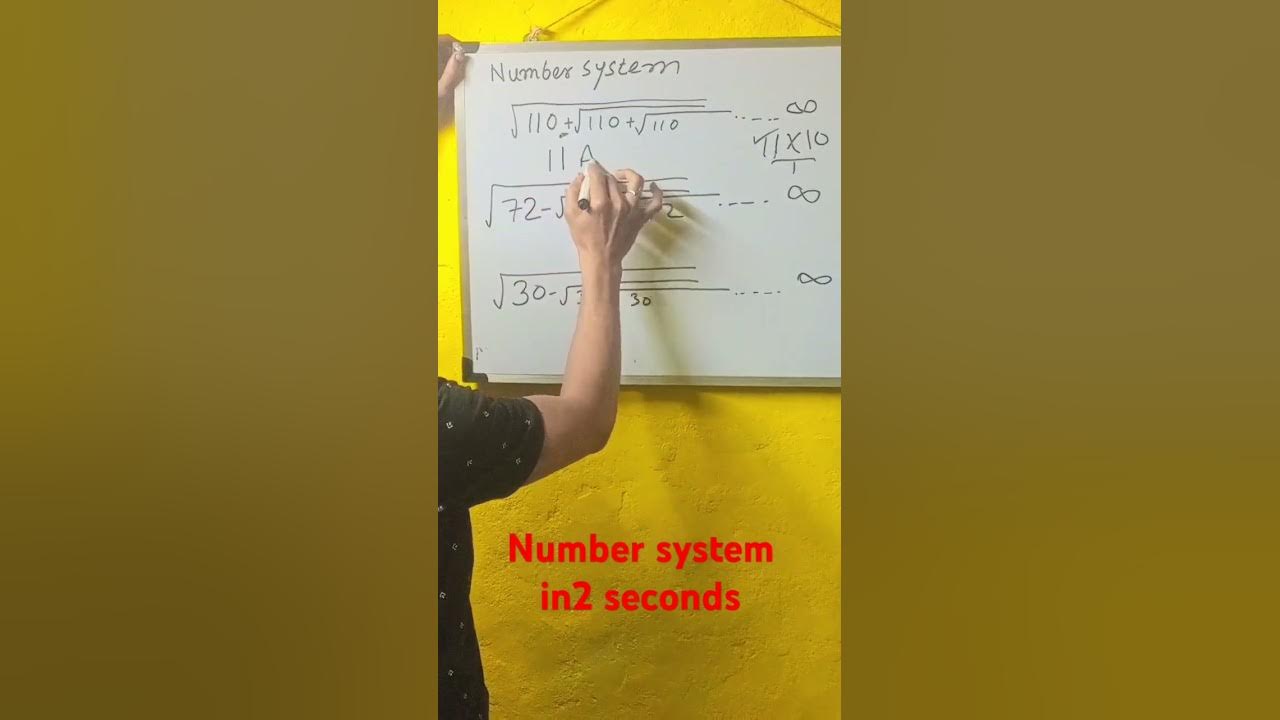 Number system
√110+√110+√110 ..... ∞
11×10
1
11 A
√72-√ 2 ..... ∞
√30-√3 30 ..... ∞
Number system
in2 seconds